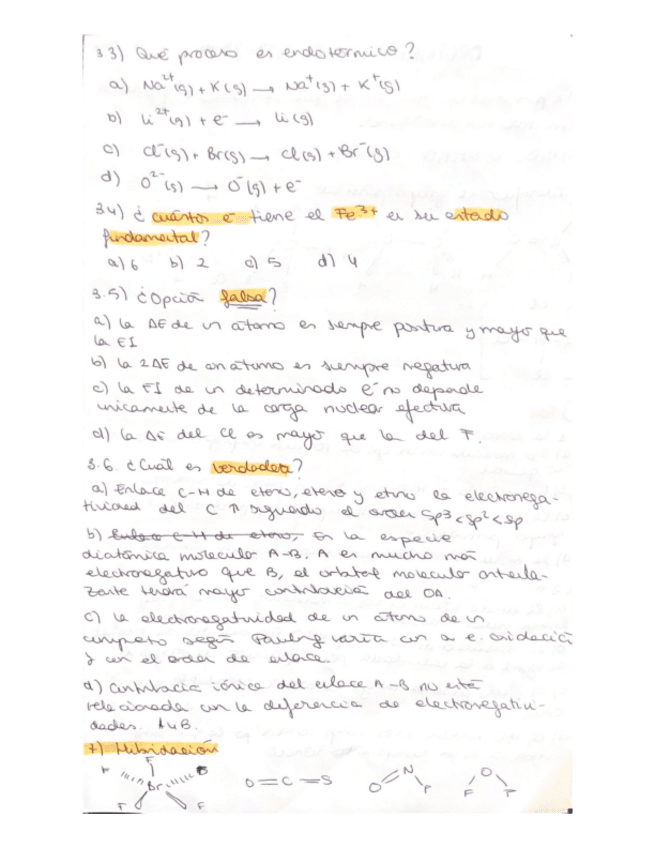 3.3) Qué proceso es endotérmico?
a) Na²⁺(g) + K(g) → Na⁺(g) + K⁺(g)
b) Li²⁺(g) + e⁻ → Li(g)
c) Cl⁻(g) + Br(g) → Cl(g) + Br⁻(g)
d) O²⁻(g) → O⁻(g) + e⁻
3.4) ¿ cuántos e⁻ tiene el Fe³⁺ en su estado
fundamental?
a) 6 b) 2 c) 5 d) 4
3.5) ¿Opción falsa?
a) la ΔE de un átomo es siempre positiva y mayor que
la EI
b) la 2ΔE de un átomo es siempre negativa
c) la EI de un determinado e⁻ no depende
unicamente de la carga nuclear efectiva
d) la ΔE del Cl es mayor que la del F.
3.6. ¿Cuál es verdadera?
a) Enlace C-H de etano, eteno y etino la electronega-
tividad del C ↑ siguiendo el orden sp3<sp²<sp
b) Enlace C-H de etano, En la especie
diatómica molecular A-B. A es mucho más
electronegativo que B, el orbital molecular antienla-
zante tendrá mayor contribución del OA.
c) la electronegatividad de un átomo de un
compuesto según Pauling varía con su e. oxidación
y con el orden de enlace
d) Contribución iónica del enlace A-B no está
relacionada con la diferencia de electronegativi-
dades. A y B.
7) Hibridación
F F B
Br O=C=S O N F O
F F F F